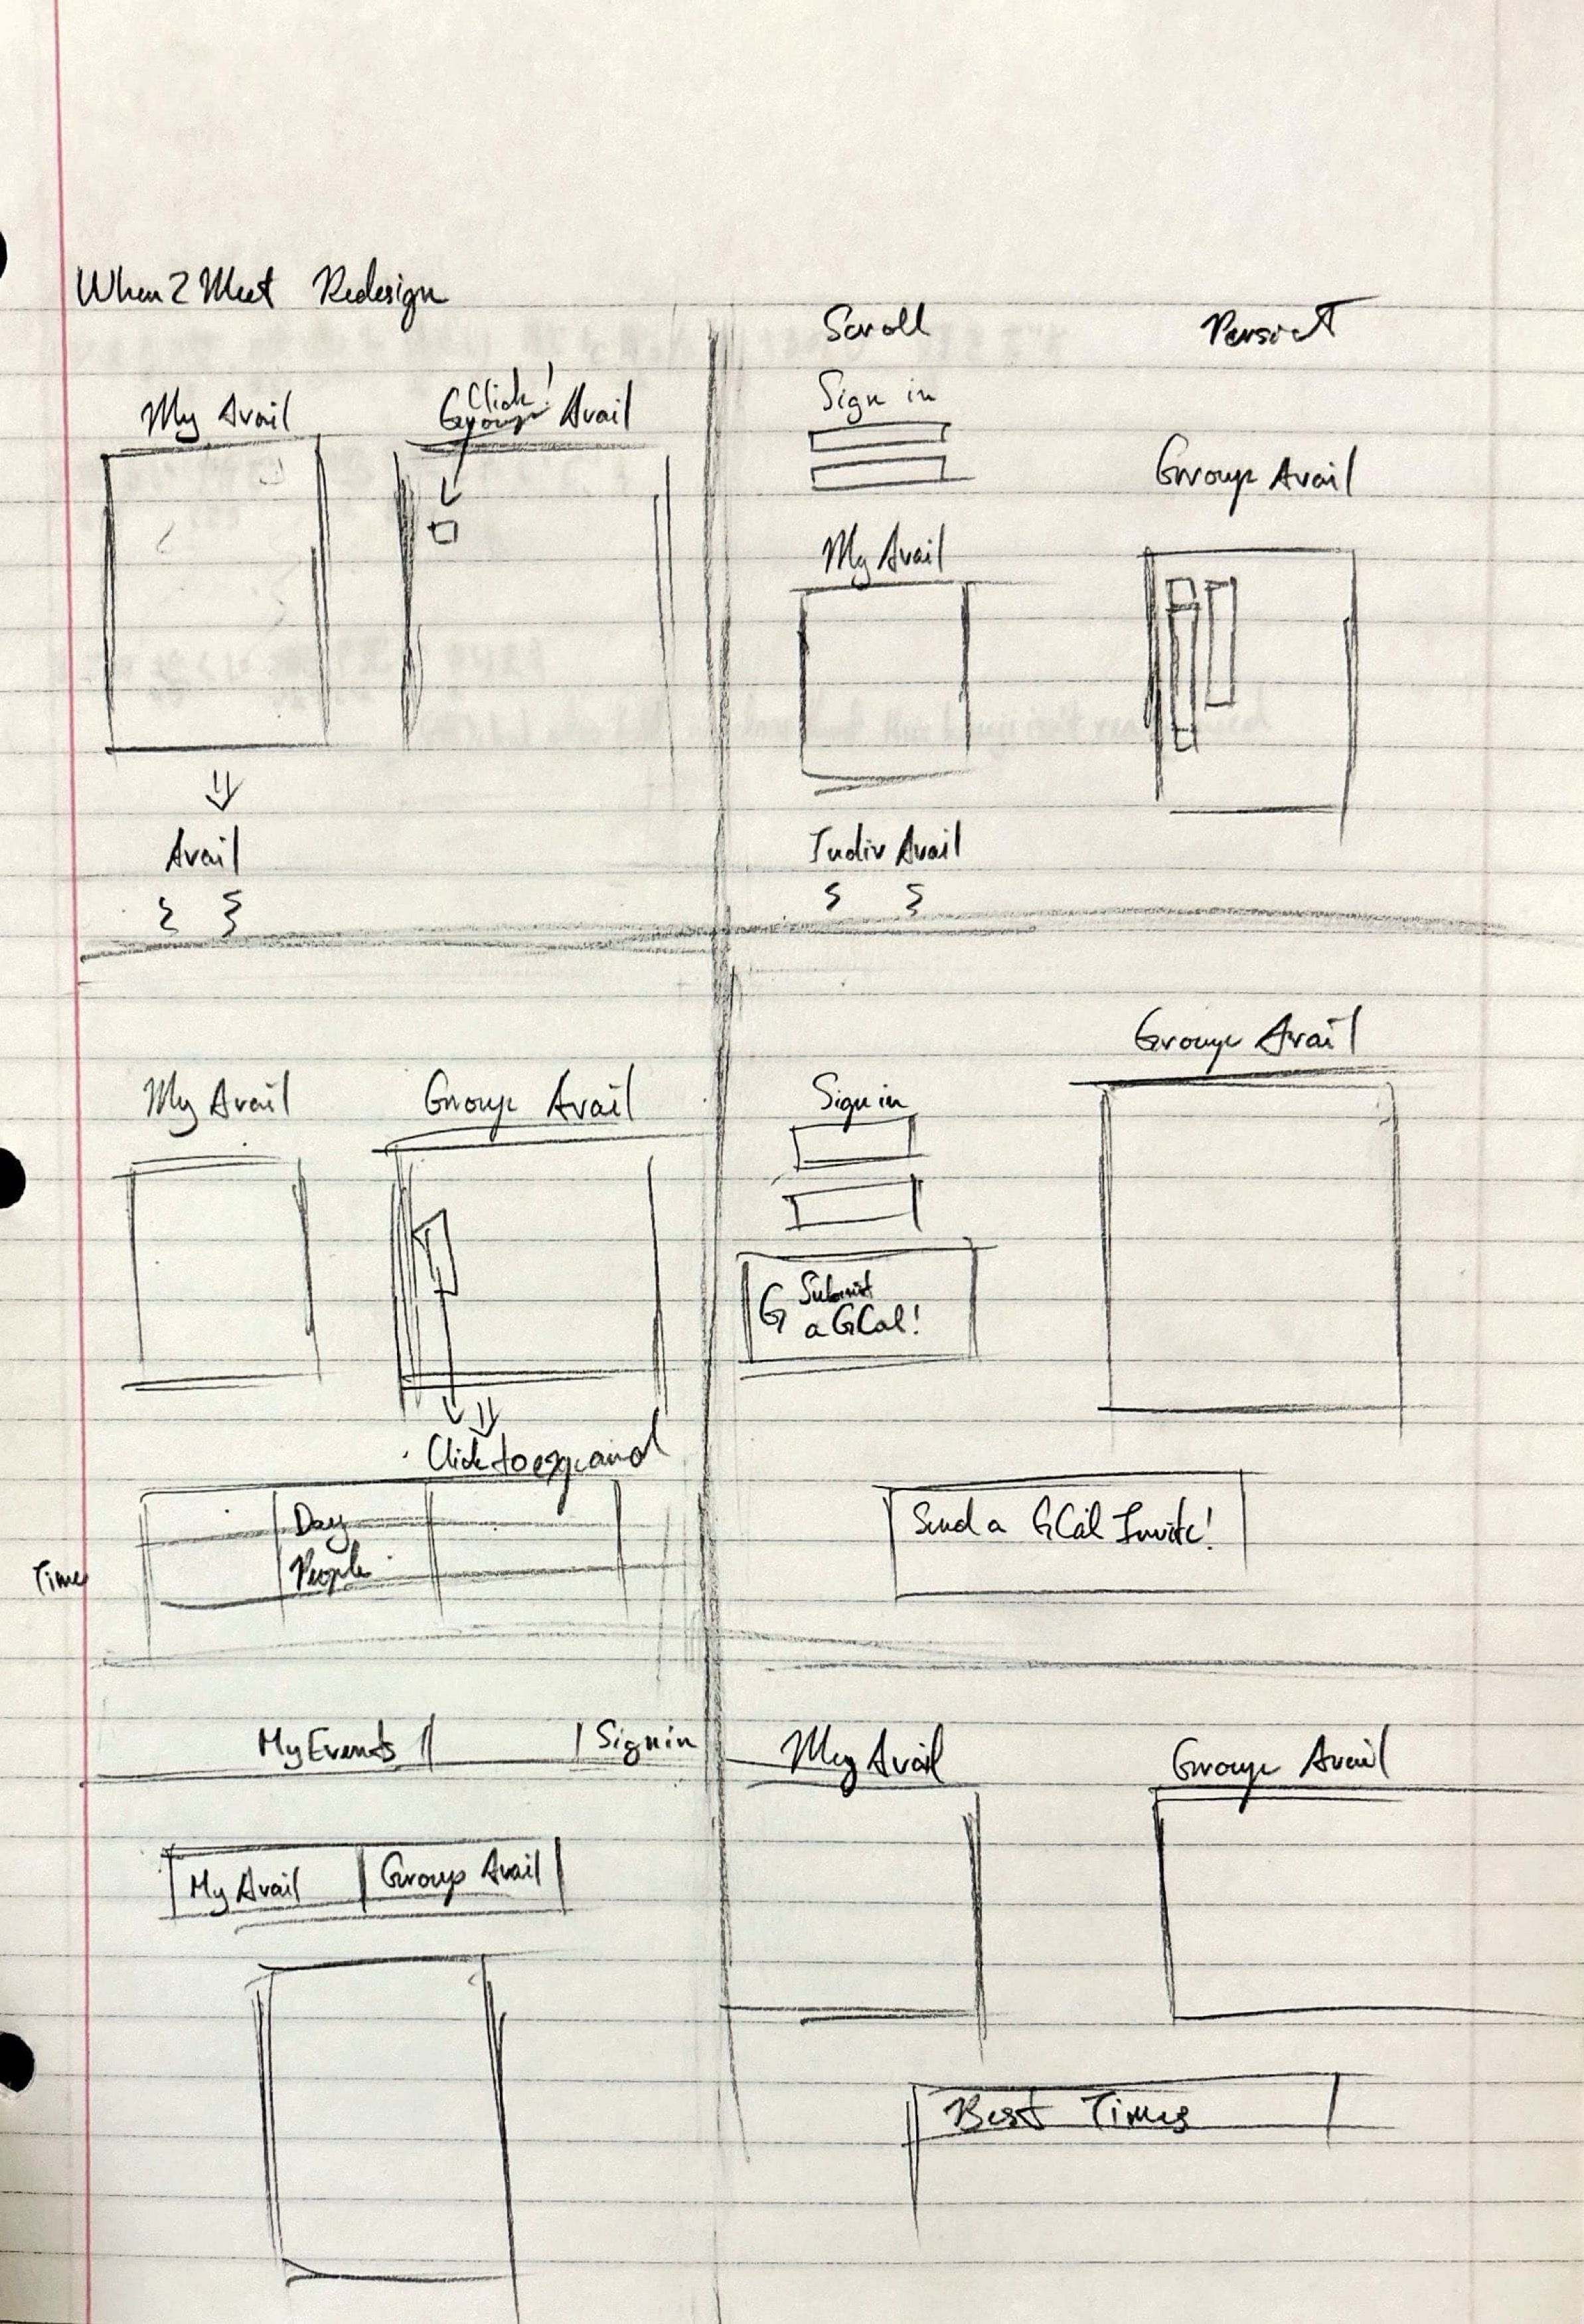 When2Meet Redesign
My Avail
Click!
Group Avail
Avail
Scroll
Persist
Sign in
Group Avail
My Avail
Indiv Avail
My Avail
Group Avail
Click to expand
Day
People
Time
Group Avail
Sign in
G Submit
a GCal!
Send a GCal Invite!
My Events
Sign in
My Avail
Group Avail
My Avail
Group Avail
Best Times